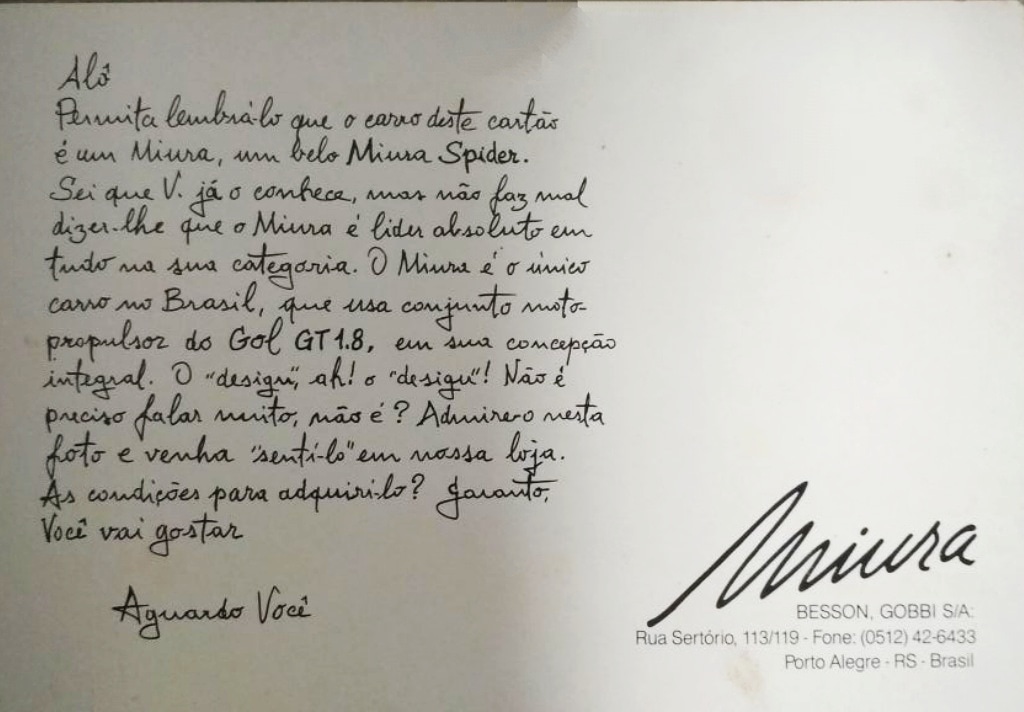 Alô
Permita lembrá-lo que o carro deste cartão
é um Miura, um belo Miura Spider.
Sei que V. já o conhece, mas não faz mal
dizer-lhe que o Miura é lider absoluto em
tudo na sua categoria. O Miura é o único
carro no Brasil, que usa conjunto moto-
propulsor do Gol GT 1.8, em sua concepção
integral. O "design", ah! o "design"! Não é
preciso falar muito, não é? Admire-o nesta
foto e venha "sentí-lo" em nossa loja.
As condições para adquiri-lo? Garanto,
Você vai gostar
Aguardo Você
Miura
BESSON, GOBBI S/A:
Rua Sertório, 113/119 - Fone: (0512) 42-6433
Porto Alegre - RS - Brasil